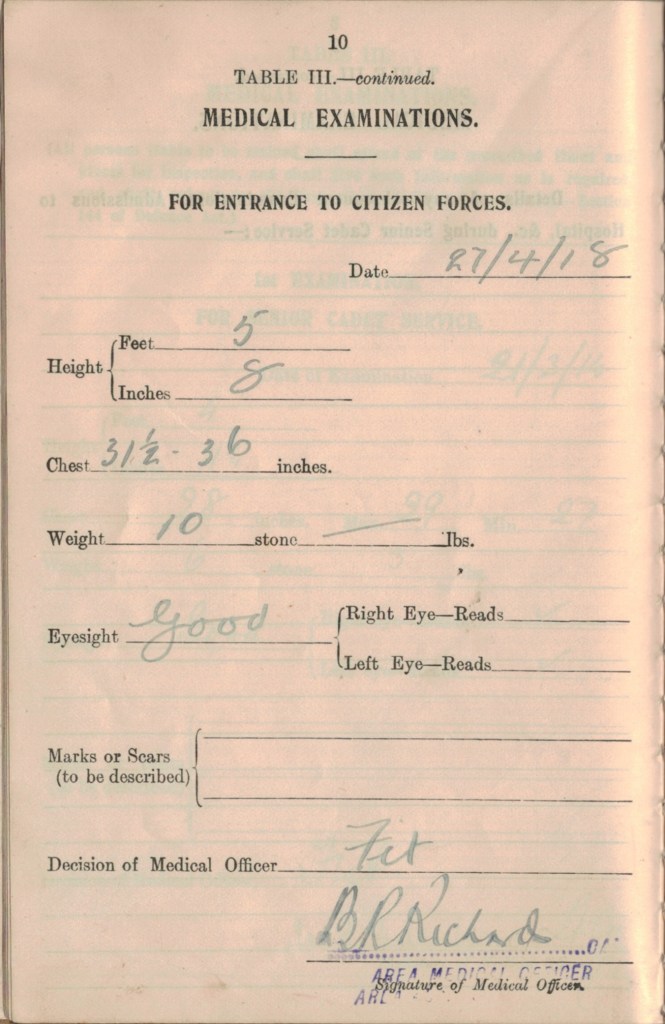 10
TABLE III.—continued.
MEDICAL EXAMINATIONS.
FOR ENTRANCE TO CITIZEN FORCES.
Date 27/4/18
Height
Feet 5
Inches 8
Chest 31½ - 36 inches.
Weight 10 stone — lbs.
Eyesight Good
Right Eye—Reads
Left Eye—Reads
Marks or Scars
(to be described)
Decision of Medical Officer Fit
AREA MEDICAL OFFICER
Signature of Medical Officer.